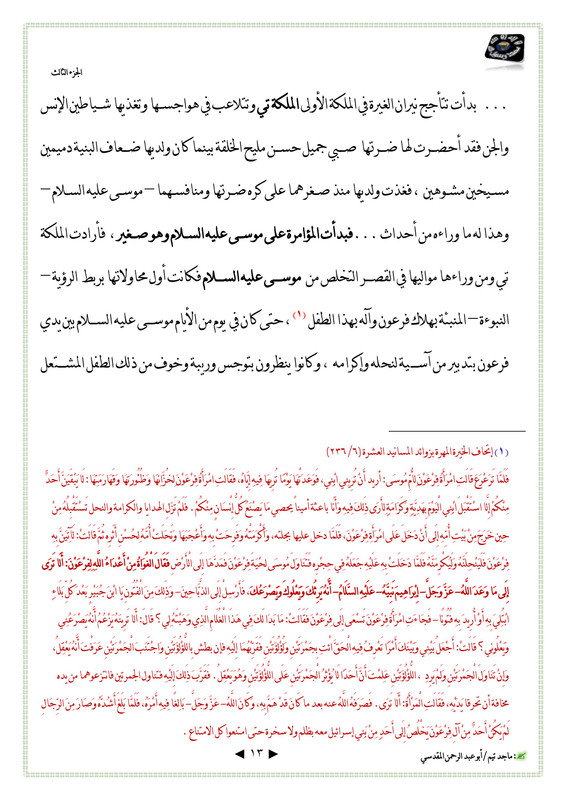 الجزء الثالث
... بدأت تتأجج نيران الغيرة في الملكة الأولى الملكة تي وتتلاعب في هواجسها وتغذيها شياطين الإنس
والجن فقد أحضرت لها ضرتها صبي جميل حسن مليح الخلقة بينما كان ولديها ضعاف البنية دميمين
مسيخين مشوهين ، فغذت ولديها منذ صغرهما على كره ضرتها ومنافسهما – موسى عليه السلام –
وهذا له ما وراءه من أحداث ... فبدأت المؤامرة على موسى عليه السلام وهو صغير ، فأرادت الملكة
تي ومن وراءها مواليها في القصر التخلص من موسى عليه السلام فكانت أول محاولاتها بربط الرؤية –
النبوءة – المنبئة بهلاك فرعون وآله بهذا الطفل (١) ، حتى كان في يوم من الأيام موسى عليه السلام بين يدي
فرعون بتدبير من آسية لنحله وإكرامه ، وكانوا ينظرون بتوجس وريبة وخوف من ذلك الطفل المشتعل
(١) إتحاف الخيرة المهرة بزوائد المسانيد العشرة (٦/ ٢٣٦)
فَلَمَّا تَرَعْرَعَ قَالَتِ امْرَأَةُ فِرْعَوْنَ لأُمِّ مُوسَى: أريد أَنْ تُرِيَنِي ابْنِي، فَوَعَدَتْهَا يَوْمًا تُرِيهَا فِيهِ إِيَّاهُ، فَقَالَتِ امْرَأَةُ فِرْعَوْنَ لِخُزَّانِهَا وَظُئُورَتِهَا وَقَهَارِمَتِهَا : لَا يَبْقَيَنَّ أَحَدٌ
مِنْكُمْ إِلَّا اسْتَقْبَلَ ابْنِي الْيَوْمَ بِهَدِيَّةٍ وَكَرَامَةٍ لِأَرَى ذَلِكَ فِيهِ وأنا باعثة أمينا يحصي مَا يَصْنَعُ كُلُّ إِنْسَانٍ مِنْكُمْ. فلم تزل الهدايا والكرامة والنحل تَسْتَقْبِلُهُ مِنْ
حين خَرَجَ مِنْ بَيْتِ أُمِّهِ إِلَى أَنْ دَخَلَ عَلَى امْرَأَةِ فِرْعَوْنَ، فَلَمَّا دخل عليها بجلته، وأكرمته وَفَرِحَتْ بِهِ وأعجبها وَنَحَلَتْ أُمَّهُ لِحُسْنِ أَثَرِهِ ثُمَّ قَالَتْ: لَآتِيَنَّ بِهِ
فِرْعَوْنَ فَلَيُنْحِلَنَّهُ وَلَيُكْرِمَنَّهُ فَلَمَّا دَخَلَتْ بِهِ عَلَيْهِ جَعَلَهُ فِي حِجْرِهِ فَتَنَاوَلَ مُوسَى لحية فِرْعَوْنَ فَمَدَّهَا إِلَى الْأَرْضِ فَقَالَ الْغُوَاةُ مِنْ أَعْدَاءِ اللَّهِ لِفِرْعَوْنَ: أَلَا تَرَى
إِلَى مَا وَعَدَ اللَّهُ – عَزَّ وَجَلَّ – إِبْرَاهِيمَ نَبِيَّهُ – عَلَيْهِ السَّلَامُ – أَنَّهُ يَرِثُكَ وَيَعْلُوكَ وَيَصْرَعُكَ، فأرسل إلى الذباحين – وذلك مِنَ الْفُتُونِ يَا ابْنَ جُبَيْرٍ بَعْدَ كُلِّ بَلَاءٍ
ابْتُلِيَ بِهِ أَوْ أُرِيدَ بِهِ فُتُونًا – فَجَاءَتِ امْرَأَةُ فِرْعَوْنَ تَسْعَى إِلَى فِرْعَوْنَ فَقَالَتْ: مَا بَدَا لَكَ فِي هَذَا الْغُلَامِ الَّذِي وَهَبْتَهُ لِي؟ قَالَ: أَلَا تَرِينَهُ يَزْعُمُ أَنَّهُ يَصْرَعُنِي
وَيَعْلُونِي؟ قالت: اجْعَلْ بَيْنِي وَبَيْنَكَ أَمْرًا تَعْرِفُ فِيهِ الْحَقَّ ائت بِجَمْرَتَيْنِ وَلُؤْلُؤَتَيْنِ فَقَرِّبْهُمَا إِلَيْهِ فإن بطش باللُّؤْلُؤَتَيْنِ وَاجْتَنَبَ الْجَمْرَتَيْنِ عَرَفْتَ أَنَّهُ يَعْقِلُ،
وَإِنْ تَنَاوَلَ الْجَمْرَتَيْنِ وَلَمْ يرد ، اللُّؤْلُؤَتَيْنِ عَلِمْتَ أَنَّ أَحَدًا لَا يُؤْثِرُ الْجَمْرَتَيْنِ عَلَى اللُّؤْلُؤَتَيْنِ وَهُوَ يَعْقِلُ. فَقَرَّبَ ذَلِكَ إِلَيْهِ فتناول الجمرتين فانتزعوهما من يده
مخافة أن تحرقا يديْهِ، فَقَالَتِ الْمَرْأَةُ: أَلَا تَرَى. فَصَرَفَهُ اللَّهُ عنه بعد ما كان قَدْ هَمَّ بِهِ، وكان اللَّهُ – عَزَّ وَجَلَّ – بالغا فِيهِ أَمْرَهُ، فَلَمَّا بَلَغَ أَشُدَّهُ وَصَارَ مِنَ الرِّجَالِ
لَمْ يَكُنْ أَحَدٌ مِنْ آلِ فِرْعَوْنَ يَخْلُصُ إِلَى أَحَدٍ مِنْ بَنِي إسرائيل معه بظلم ولا سخرة حتى امتنعوا كل الامتناع .
: ماجد تيم / أبو عبد الرحمن المقدسي
١٣